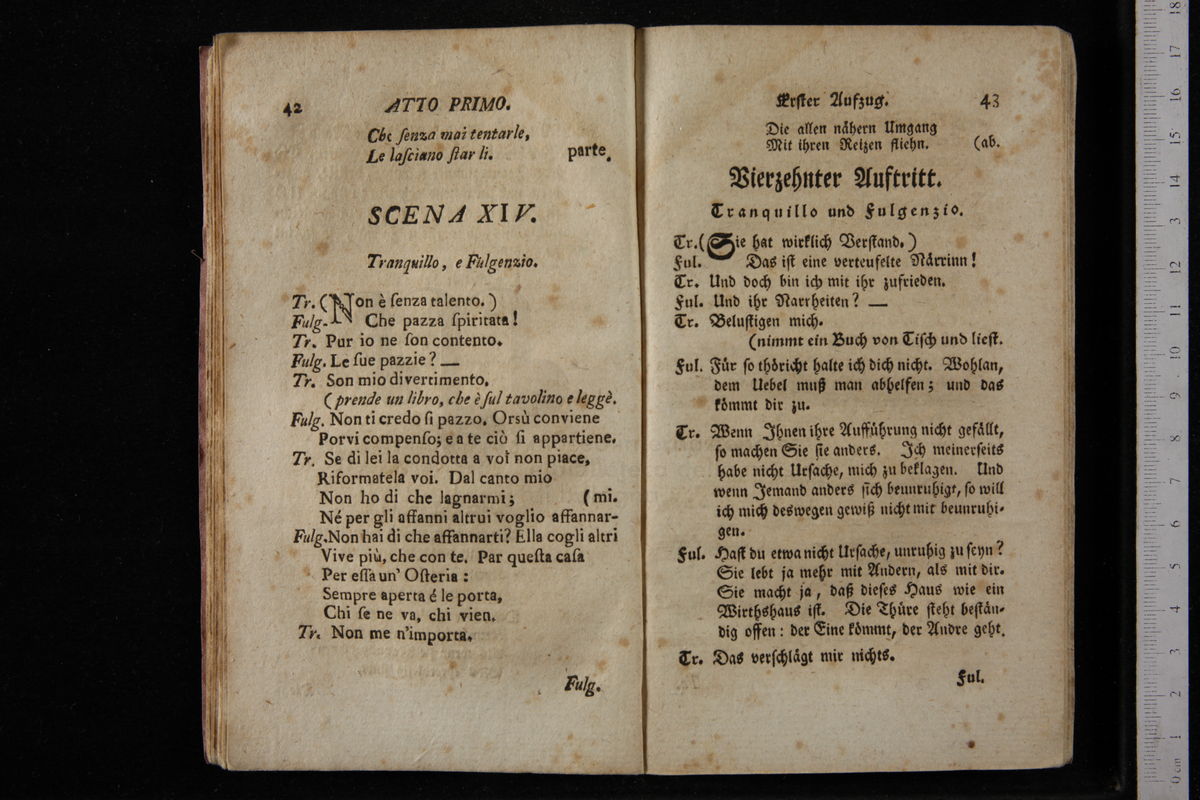 42 ATTO PRIMO.
Che ſenza mai tentarle,
Le laſciano ſtar lì. parte.
SCENA XIV.
Tranquillo, e Fulgenzio.
Tr. (Non è ſenza talento.)
Fulg. Che pazza ſpiritata!
Tr. Pur io ne ſon contento.
Fulg. Le ſue pazzie? —
Tr. Son mio divertimento.
(prende un libro, che è ſul tavolino e leggè.
Fulg. Non ti credo ſi pazzo. Orsù conviene
Porvi compenſo; e a te ciò ſi appartiene.
Tr. Se di lei la condotta a voi non piace,
Riformatela voi. Dal canto mio
Non ho di che lagnarmi; (mi.
Né per gli affanni altrui voglio affannar-
Fulg. Non hai di che affannarti? Ella cogli altri
Vive più, che con te. Par queſta caſa
Per eſſa un' Oſteria:
Sempre aperta é le porta,
Chi ſe ne va, chi vien.
Tr. Non me n'importa.
Fulg.
Erſter Aufzug. 43
Die allen nähern Umgang
Mit ihren Reizen fliehn. (ab.
Vierzehnter Auftritt.
Tranquillo und Fulgenzio.
Tr. (Sie hat wirklich Verſtand.)
Ful. Das iſt eine verteufelte Närrinn!
Tr. Und doch bin ich mit ihr zufrieden.
Ful. Und ihr Narrheiten? —
Tr. Beluſtigen mich.
(nimmt ein Buch von Tiſch und lieſt.
Ful. Für ſo thöricht halte ich dich nicht. Wohlan,
dem Uebel muß man abhelfen; und das
kömmt dir zu.
Tr. Wenn Ihnen ihre Aufführung nicht gefällt,
ſo machen Sie ſie anders. Ich meinerſeits
habe nicht Urſache, mich zu beklagen. Und
wenn Jemand anders ſich beunruhigt, ſo will
ich mich deswegen gewiß nicht mit beunruhi-
gen.
Ful. Haſt du etwa nicht Urſache, unruhig zu ſeyn?
Sie lebt ja mehr mit Andern, als mit dir.
Sie macht ja, daß dieſes Haus wie ein
Wirthshaus iſt. Die Thüre ſteht beſtän-
dig offen: der Eine kömmt, der Andre geht.
Tr. Das verſchlägt mir nichts.
Ful.
0 cm 1 2 3 4 5 6 7 8 9 10 11 12 13 14 15 16 17 18